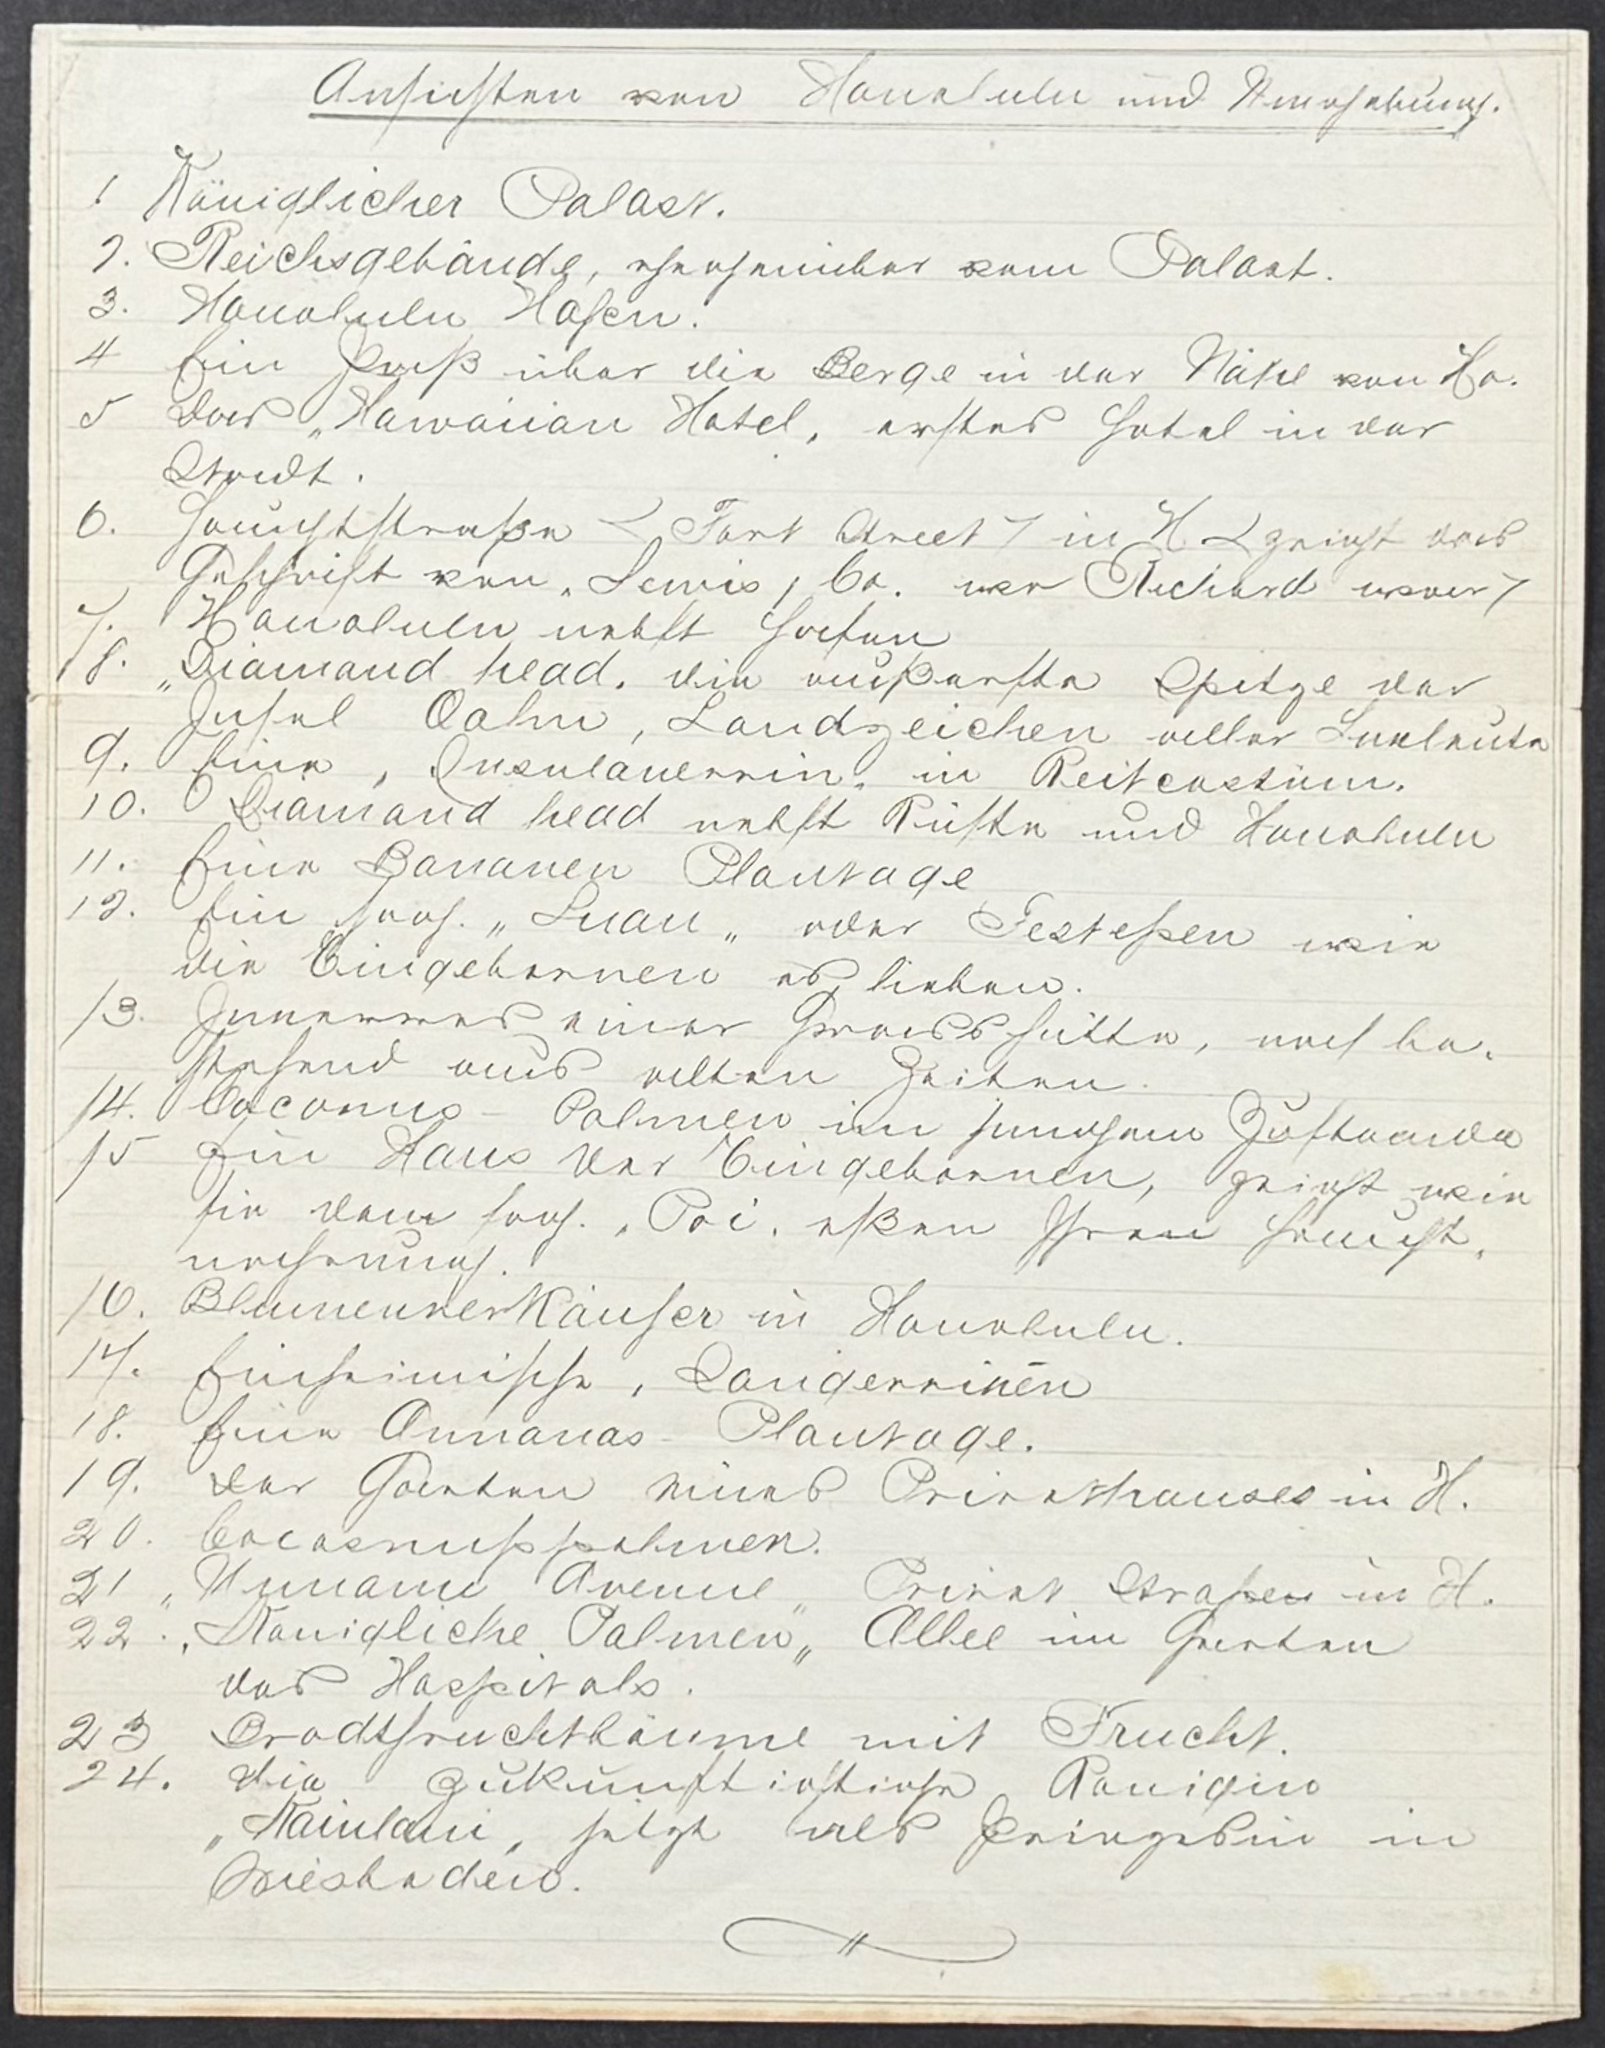 Ansichten von Honolulu und Umgebung.
1 Königlicher Palast.
2. Reichsgebäude, gegenüber vom Palast.
3. Honolulu Hafen.
4 Ein Paß über die Berge in der Nähe von Ho.
5 Das „Hawaiian Hotel, erstes Hotel in der
Stadt.
6. Hauptstraße (Fort Street) in H (zeigt das
Geschäft von „Lewis, Co. wo Richard war)
7. Honolulu nebst Hafen
8. „Diamand head. die äußerste Spitze der
Insel Oahu, Landzeichen aller Seeleute
9. Eine, Insulanerrin. in Reitcostüm.
10. Diamand head nebst Küste und Honolulu
11. Eine Bananen Plantage
12. Ein sog. „Luau„ oder Festeßen wie
die Eingebornen es lieben.
13. Innerres einer Grasshütte, noch be-
stehend aus alten Zeiten.
14. Coconus- Palmen im jungem Zustande
15 Ein Haus der Eingebornen, zeigt wie
sie dem sog. „Poi. eßen Ihren Haupt-
nahrung.
16. Blumenverkäufer in Honolulu.
17. Einheimische, Sängerrinen
18. Eine Annanas- Plantage.
19. Der Garten eines Privathauses in H.
20. Cocosnusspalmen.
21 „Nuuanu Avenue„ Privat Straßen in H.
22. „Königliche Palmen„ Allee im Garten
des Hospitals.
23 Brodtfruchtbäume mit Frucht.
24. Die Königin
„Kaiulani„ jetzt als Prinzessin in
Wiesbaden.